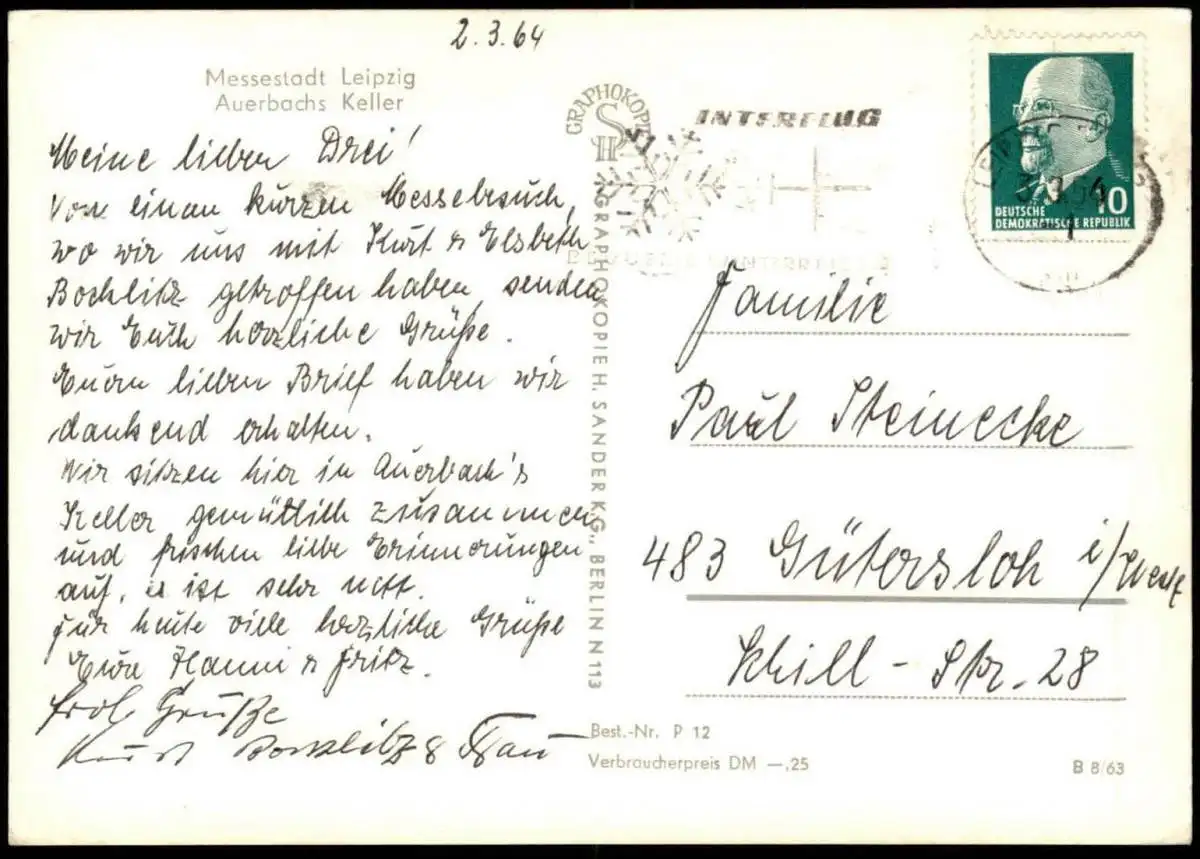 2.3.64
Messestadt Leipzig
Auerbachs Keller
Meine lieben Drei!
Von einem kurzen Messebesuch,
wo wir uns mit Kurt & Elsbeth
Bocklitz getroffen haben, senden
wir Euch herzliche Grüße.
Euren lieben Brief haben wir
dankend erhalten.
Wir sitzen hier in Auerbach's
Keller gemütlich zusammen
und frischen liebe Erinnerungen
auf, es ist sehr nett.
Für heute viele herzliche Grüße
Eure Hanni & Fritz.
frdl. Grüße
Kurt Bocklitz & Frau
GRAPHOKOPIE
SH
GRAPHOKOPIE H. SANDER K.G., BERLIN N 113
INTERFLUG
10
DEUTSCHE
DEMOKRATISCHE REPUBLIK
Familie
Paul Steinecke
483 Gütersloh i/Westf
Schill-Str. 28
Best.-Nr. P 12
Verbraucherpreis DM —,25
B 8/63